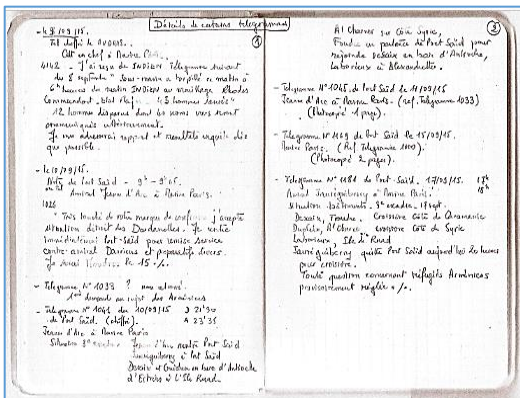 Détails de certains télégrammes
①
- Le 9/09/15.
Tel chiffré de
Cdt en chef à Marine Paris.
4142 - J'ai reçu de INDIEN Télégramme suivant
du 8 septembre " sous-marin a torpillé ce matin à
6 heures du matin INDIEN au mouillage Rhodes
Commandant, état Major, 143 hommes sauvés "
12 hommes disparus dont les noms vous seront
communiqués ultérieurement.
Je vous adresserai rapport et résultats enquête dès
que possible.
- Le 10/09/15.
de Port Saïd - 9h - 9h65.
Amiral Jeanne d'Arc à Marine Paris.
1026
" Très touché de votre marque de confiance j'accepte
situation des Dardanelles. Je rentre
immédiatement Port-Saïd pour remise service
contre-amiral Darrieus et préparatifs divers.
Je serai le 15. %.
- Télégramme N° 1033 ?
au sujet des Arméniens
- Télégramme N° 1041 du 10/09/15 D 21h30
de Port Saïd. (chiffré). A 23h35
Jeanne d'Arc à Marine Paris
Situation 3e escadre Jeanne d'Arc rentre Port Saïd
Jauréguiberry à Port Saïd
Desaix et Guichen en baie d'Antioche
d'Estrées à l'Ile Rouad
②
Al Charner sur Côte Syrie,
Foudre en partance de Port Saïd pour
rejoindre Desaix en baie d'Antioche,
Laborieux à Alexandrette.
- Télégramme N° 1045 de Port Saïd le 11/09/15
Jeanne d'Arc à Marine Paris. (ref. Télégramme 1033)
(Photocopié 1 page).
- Télégramme N° 1169 de Port Saïd le 15/09/15.
Marine Paris. (Ref Télégramme 1100).
(Photocopié 2 pages).
- Télégramme N° 1181 de Port-Saïd. 17/09/15.
Amiral Jauréguiberry à Marine Paris.
Situation bâtiments. 3e escadre. 17 sept.
Desaix, Foudre. Croisière Côte de Caramanie
Dupleix, Al Charner. croisière Côte de Syrie
Laborieux, Ile de Rouad
Jauréguiberry quitte Port Saïd aujourd'hui 20 heures
pour croisière.
Toute question concernant réfugiés Arméniens
provisoirement réglée. %.